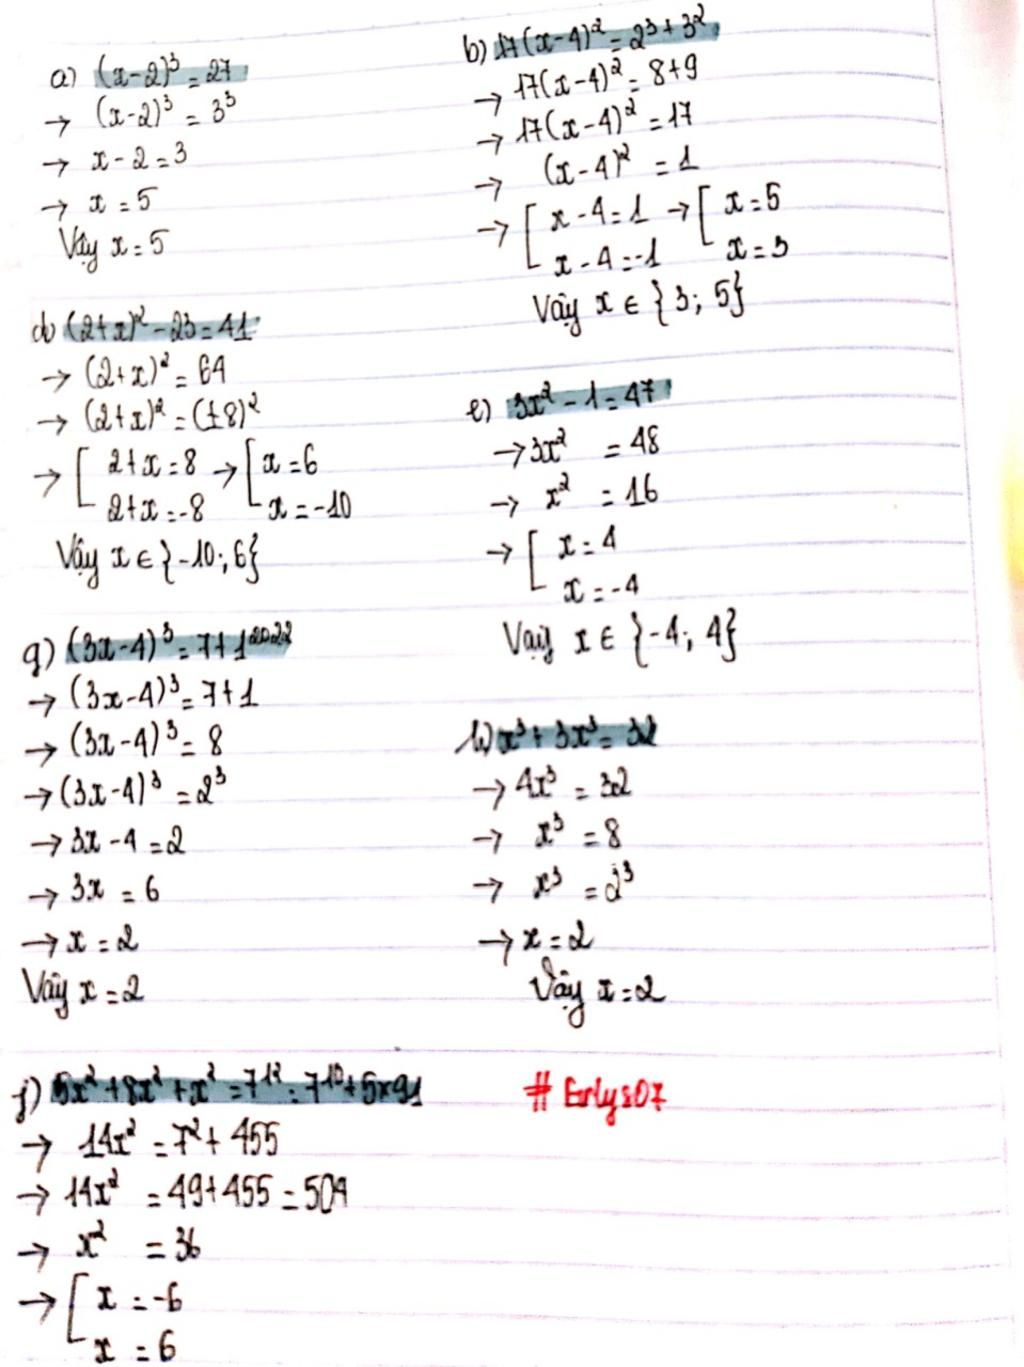 a) (x-2)³ = 27
→ (x-2)³ = 3³
→ x - 2 = 3
→ x = 5
Vậy x = 5
b) 17(x-4)² = 2³ + 3²
→ 17(x-4)² = 8+9
→ 17(x-4)² = 17
→ (x-4)² = 1
→ [ x-4=1 → [ x=5
x-4=-1 x=3
Vậy x ∈ {3; 5}
d) (2+x)² - 23 = 41
→ (2+x)² = 64
→ (2+x)² = (±8)²
→ [ 2+x=8 → [ x=6
2+x=-8 x=-10
Vậy x ∈ {-10; 6}
e) 3x² - 1 = 47
→ 3x² = 48
→ x² = 16
→ [ x = 4
x = -4
Vậy x ∈ {-4; 4}
g) (3x-4)³ = 7+1²⁰²²
→ (3x-4)³ = 7+1
→ (3x-4)³ = 8
→ (3x-4)³ = 2³
→ 3x-4 = 2
→ 3x = 6
→ x = 2
Vậy x = 2
h) x³ + 3x³ = 32
→ 4x³ = 32
→ x³ = 8
→ x³ = 2³
→ x = 2
Vậy x = 2
j) 5x² + 8x² + x² = 7¹² : 7¹⁰ + 5×91
→ 14x² = 7² + 455
→ 14x² = 49+455 = 504
→ x² = 36
→ [ x = -6
x = 6
# Erlys07